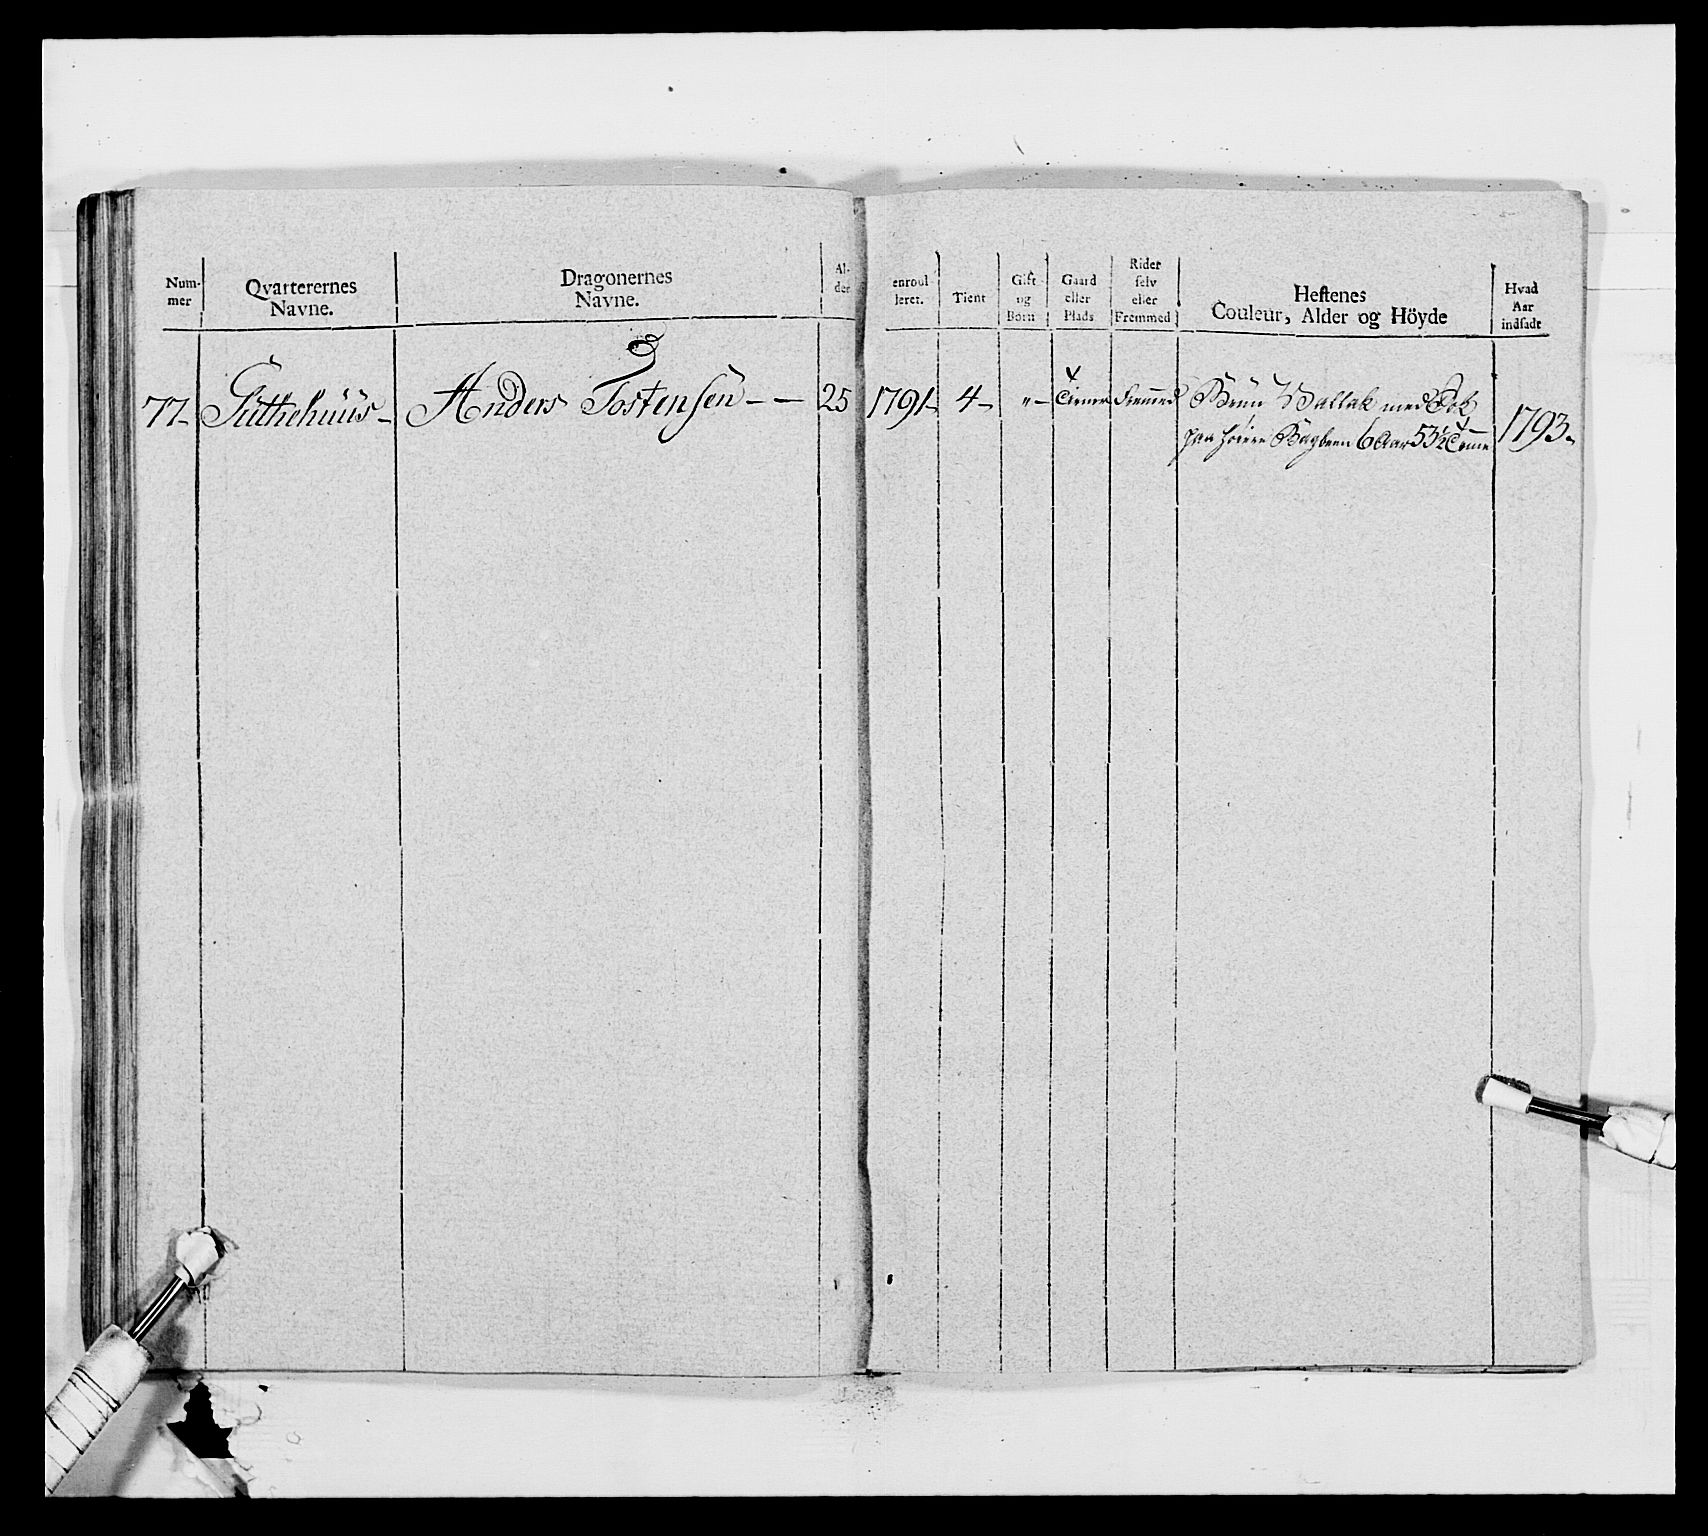 Num-
mer
Qvarterernes
Navne.
Dragonernes
Navne.
Al-
der
enroul
leret.
Tient
Gift
og
Börn
Gaard
eller
Plads
Rider
selv
eller
Fremmed
Hestenes
Couleur, Alder og Höyde
Hvad
Aar
indsadt
77- Anders Tostensen - - 25 1791- 4- "- Tiener Fremmed Brun Vallak med
paa höire Bagbeen 6 Aar 53½ 1793.